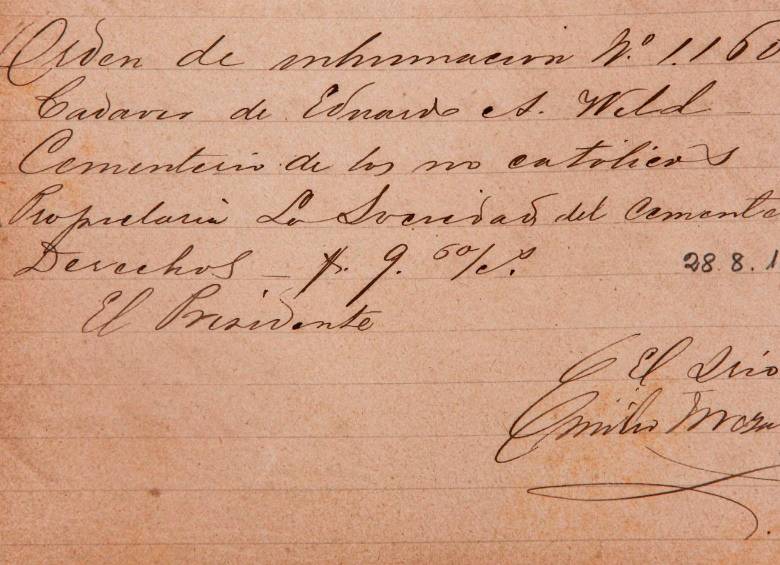 Orden de inhumacion N.º 1.160
Cadaver de Eduardo A. Weld
Cementerio de los no católicos
Propietaria La Sociedad del Cemente
Derechos — $. 9. 60/cs.
28.8.1
El Presidente
El
Emilio